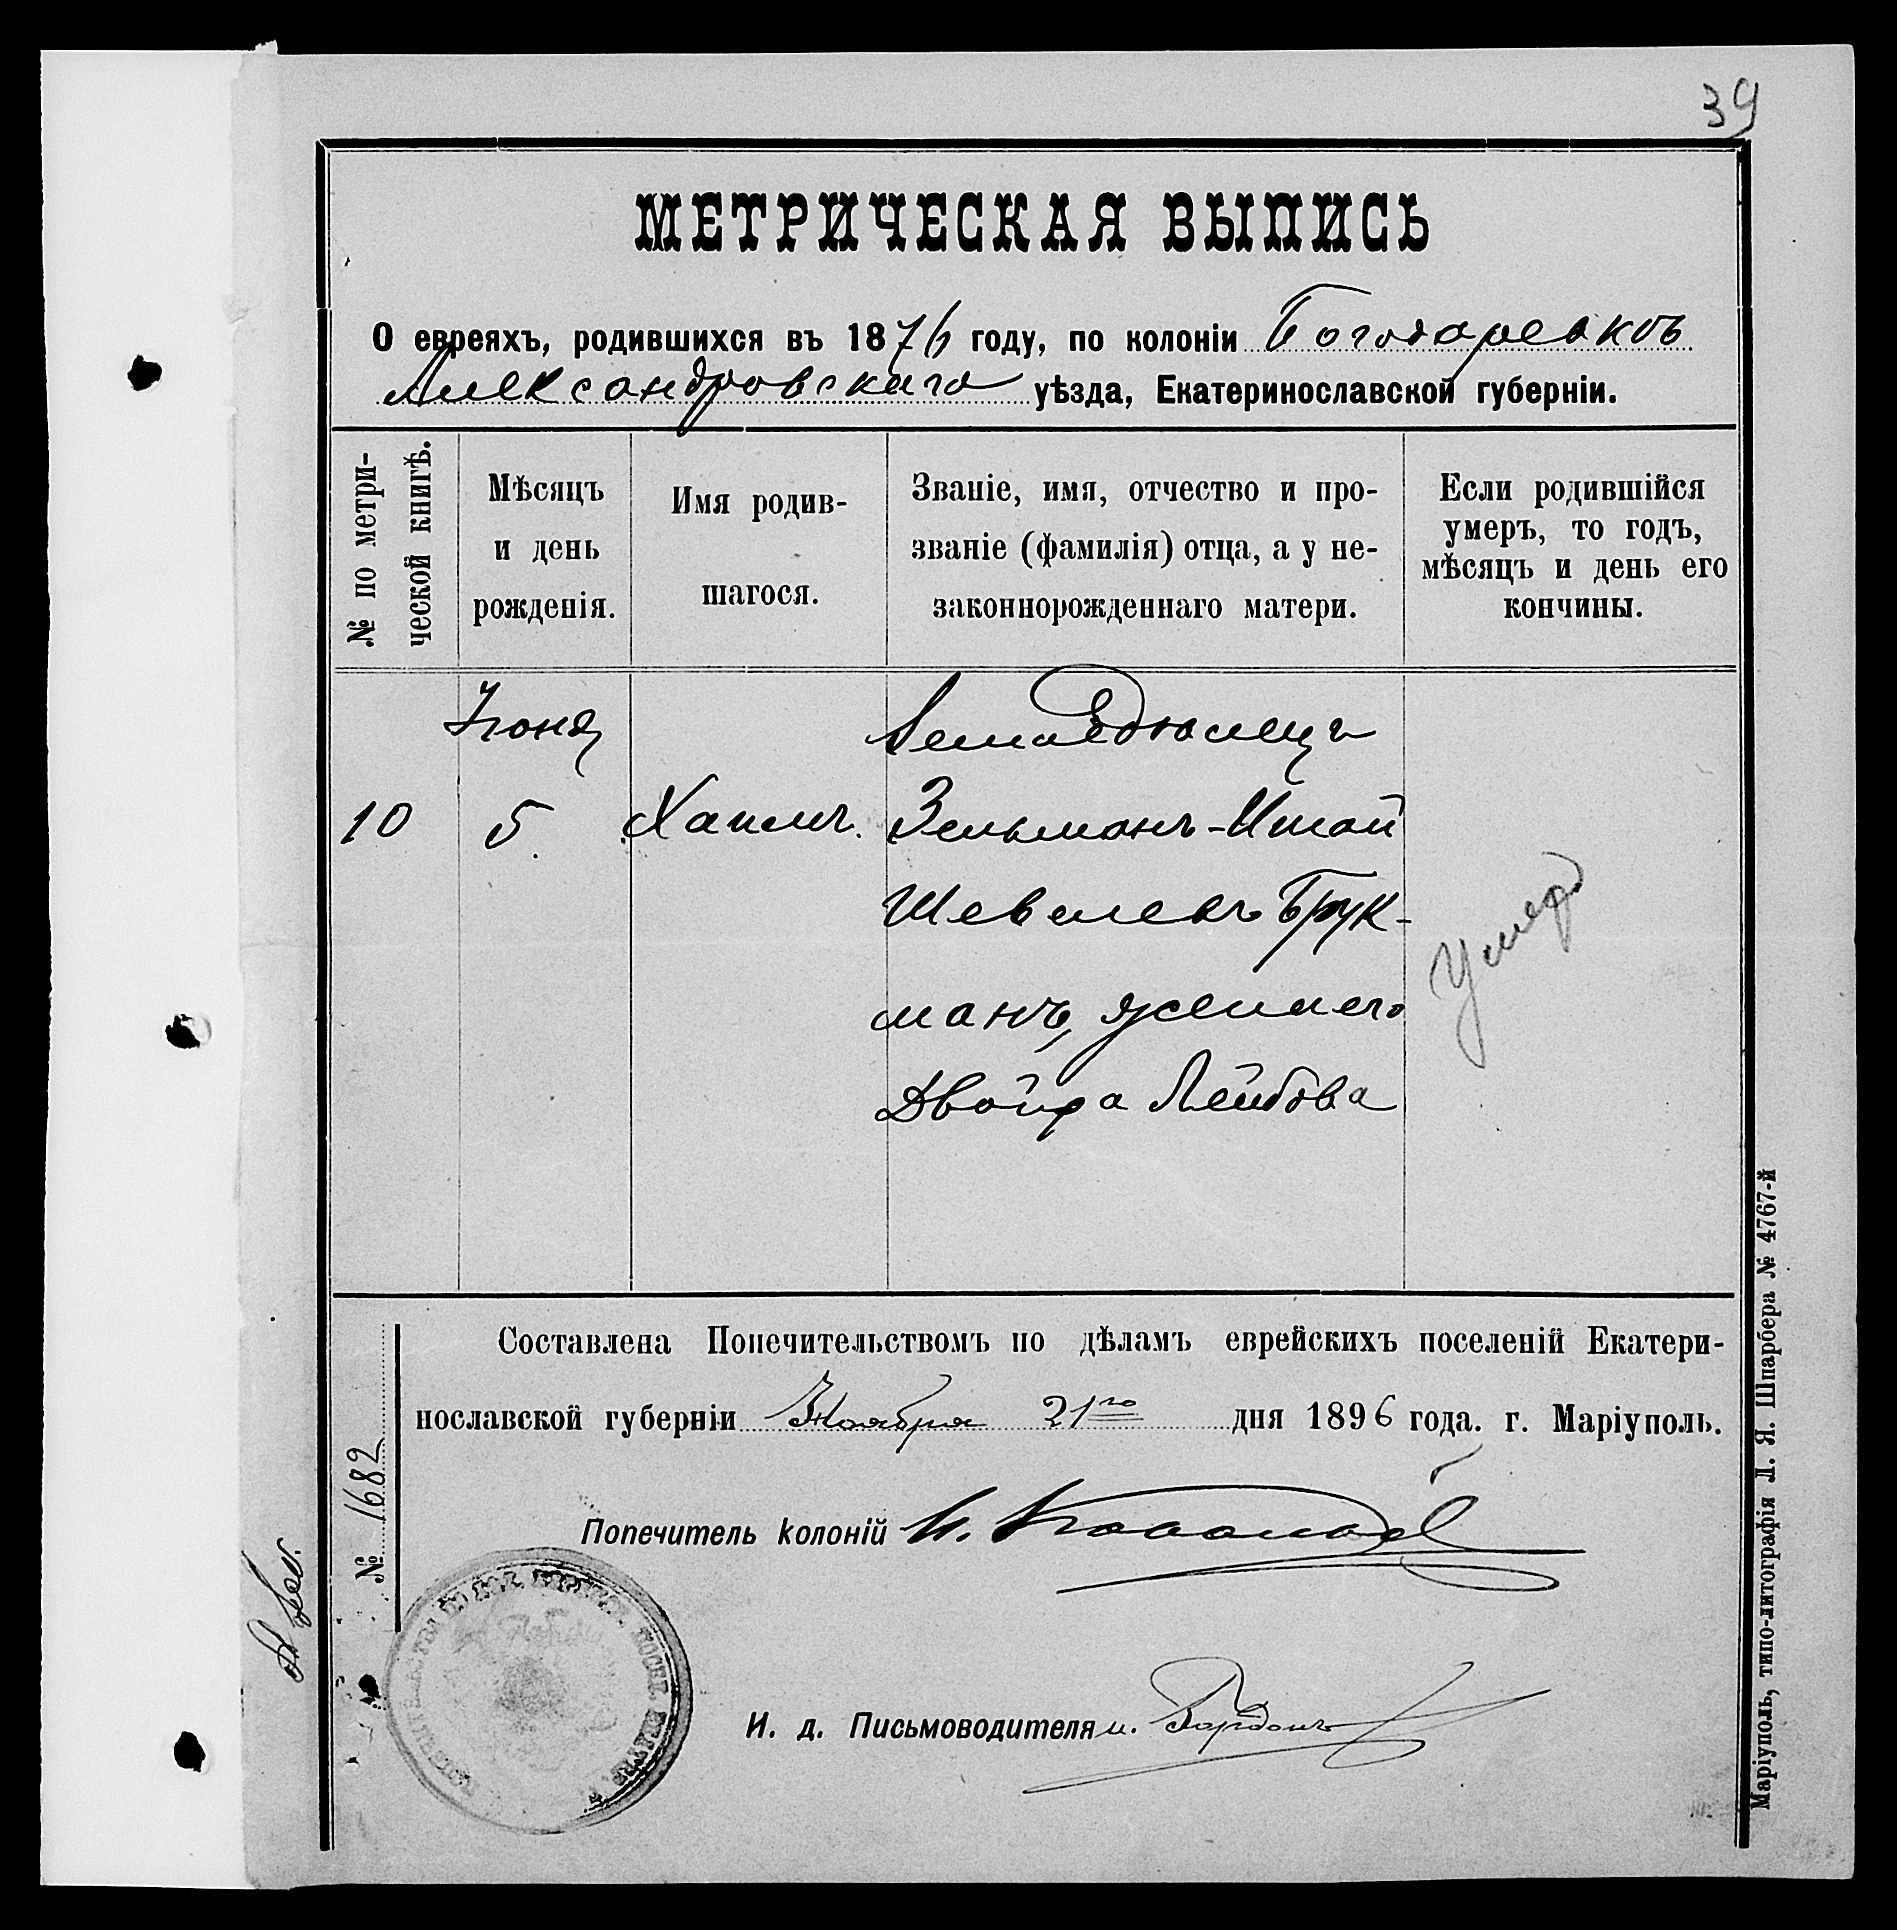 39
МЕТРИЧЕСКАЯ ВЫПИСЬ
О евреяхъ, родившихся въ 1876 году, по колоніи Богодаревкѣ
Александровскаго уѣзда, Екатеринославской губерніи.
№ по метри-
ческой книгѣ.
Мѣсяцъ
и день
рожденія.
Имя родив-
шагося.
Званіе, имя, отчество и про-
званіе (фамилія) отца, а у не-
законнорожденнаго матери.
Если родившійся
умеръ, то годъ,
мѣсяцъ и день его
кончины.
Іюня
10
5
Хаимъ.
Земледѣлецъ
Зельманъ-Итай
Шевелевъ Брук-
манъ, жена его
Двойра Лейбова
Умеръ
Составлена Попечительствомъ по дѣламъ еврейскихъ поселеній Екатери-
нославской губерніи Ноября 21го дня 1896 года. г. Маріуполь.
№ 1682
Попечитель колоній И.
И. д. Письмоводителя И. Гордонъ
Маріуполь, типо-литографія Л. Я. Шпарбера № 4767-й